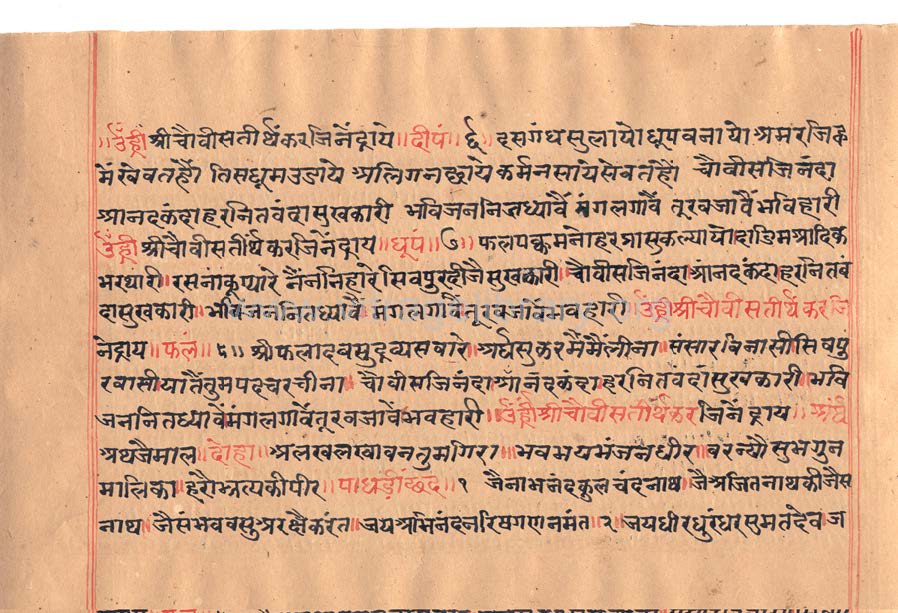 ॥उँह्रीं श्रीचौवीसतीर्थंकरजिनेंद्राये॥दीपं॥६॥दसगंधसुलायो धूपवनायो अमरजिकं
मेंखेवतहौं तिसधूमउडाये अलिगनछाये कर्मनसायेसेवतहौं चौवीसजिनंदा
आनंदकंदाहरनितवंदासुखकारी भविजननितध्यावैं मंगलगावैं तूरवजावैंभविहारी
उँह्रीं श्रीचौवीसतीर्थंकरजिनेंद्राय॥धूपं॥७॥ फलपक्कमनोहर दाडिमआदिक
भरथारी॥रसनाकुप्यारे नैंननिहारे सिवपुरदीजैसुखकारी॥चौवीसजिनंदा आंनंदकंदाहरनितवं
दासुखकारी॥भविजननितध्यावैं मंगलगावैंतूरवजावैंभवहारी॥उँह्रीं श्रीचौवीसतीर्थंकरजि
नेंद्राय॥फलं॥८॥श्रीफलादवसुद्रव्यसवारे॥अर्घसुकरमैंमैंलीना॥संसारविनासीसिवपु
रवासीयातैंतुमपदचरचीना॥चौवीसजिनंदाआंनंदकंदाहरनितवंदांसुखकारी॥भवि
जननितध्यावैंमंगलगावैंतूरवजावैंभवहारी॥उँह्रींश्रीचौवीसतीर्थंकरजिनेंद्राय॥अर्घं
अथजैमाल॥दोहा॥अलखलखावनतुमगिरा॥भवभयभंजनधीर॥वरन्यौसुभगुन
मालिका॥हरोभ्रत्यकीपीर॥पाधडीछंद॥१ जैनाभनंदकुलचंदनाथ॥जैअजितनाथकीजैस
नाथ॥जैसंभववसुअरक्षैकरंत॥जयअभिनंदनरिषगणनमंत॥२॥जयधीरधुरंधरसुमतदेवज